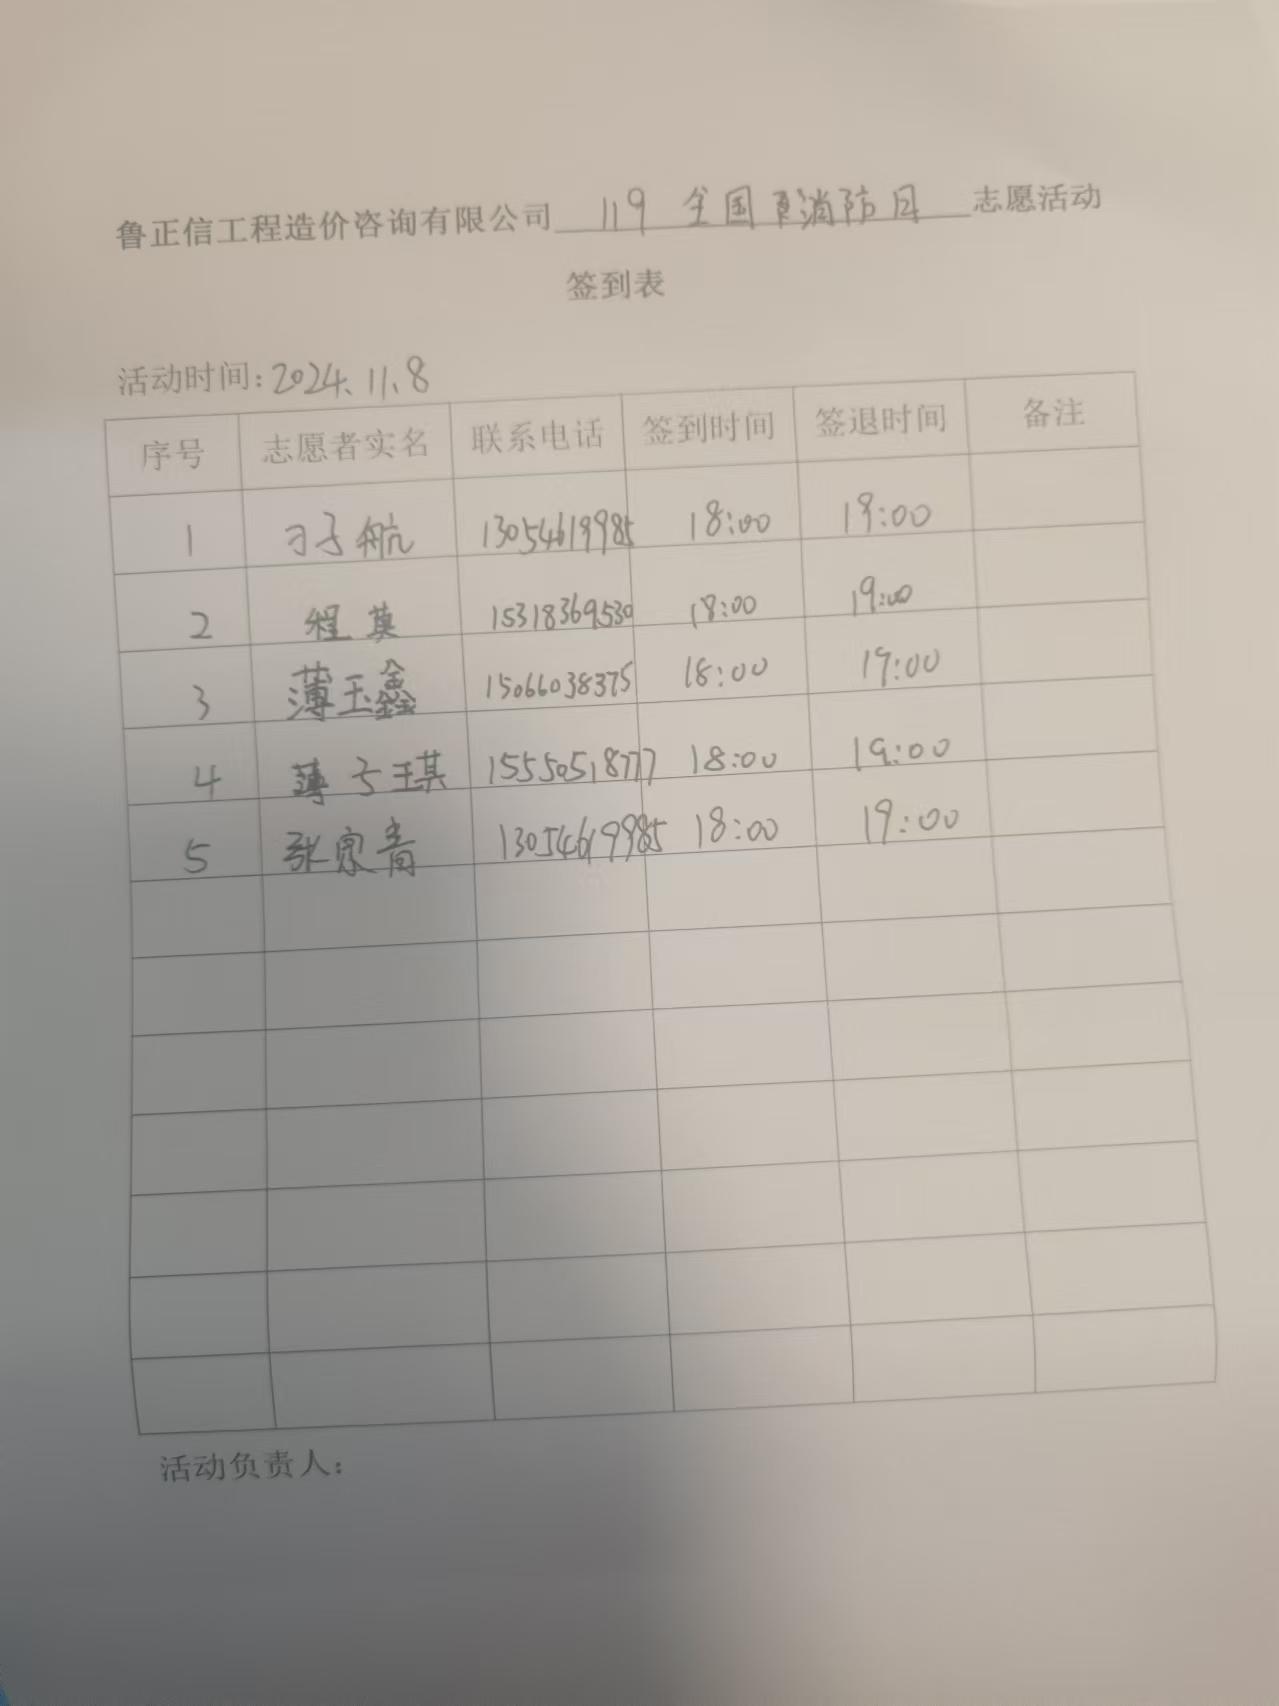 鲁正信工程造价咨询有限公司 119 全国消防日 志愿活动
签到表
活动时间:2024.11.8
序号 志愿者实名 联系电话 签到时间 签退时间 备注
1 刁子航 13054619985 18:00 19:00
2 程英 15318369530 18:00 19:00
3 薄玉鑫 15066038375 18:00 19:00
4 薄子琪 15550518777 18:00 19:00
5 张家青 13054619985 18:00 19:00
活动负责人: